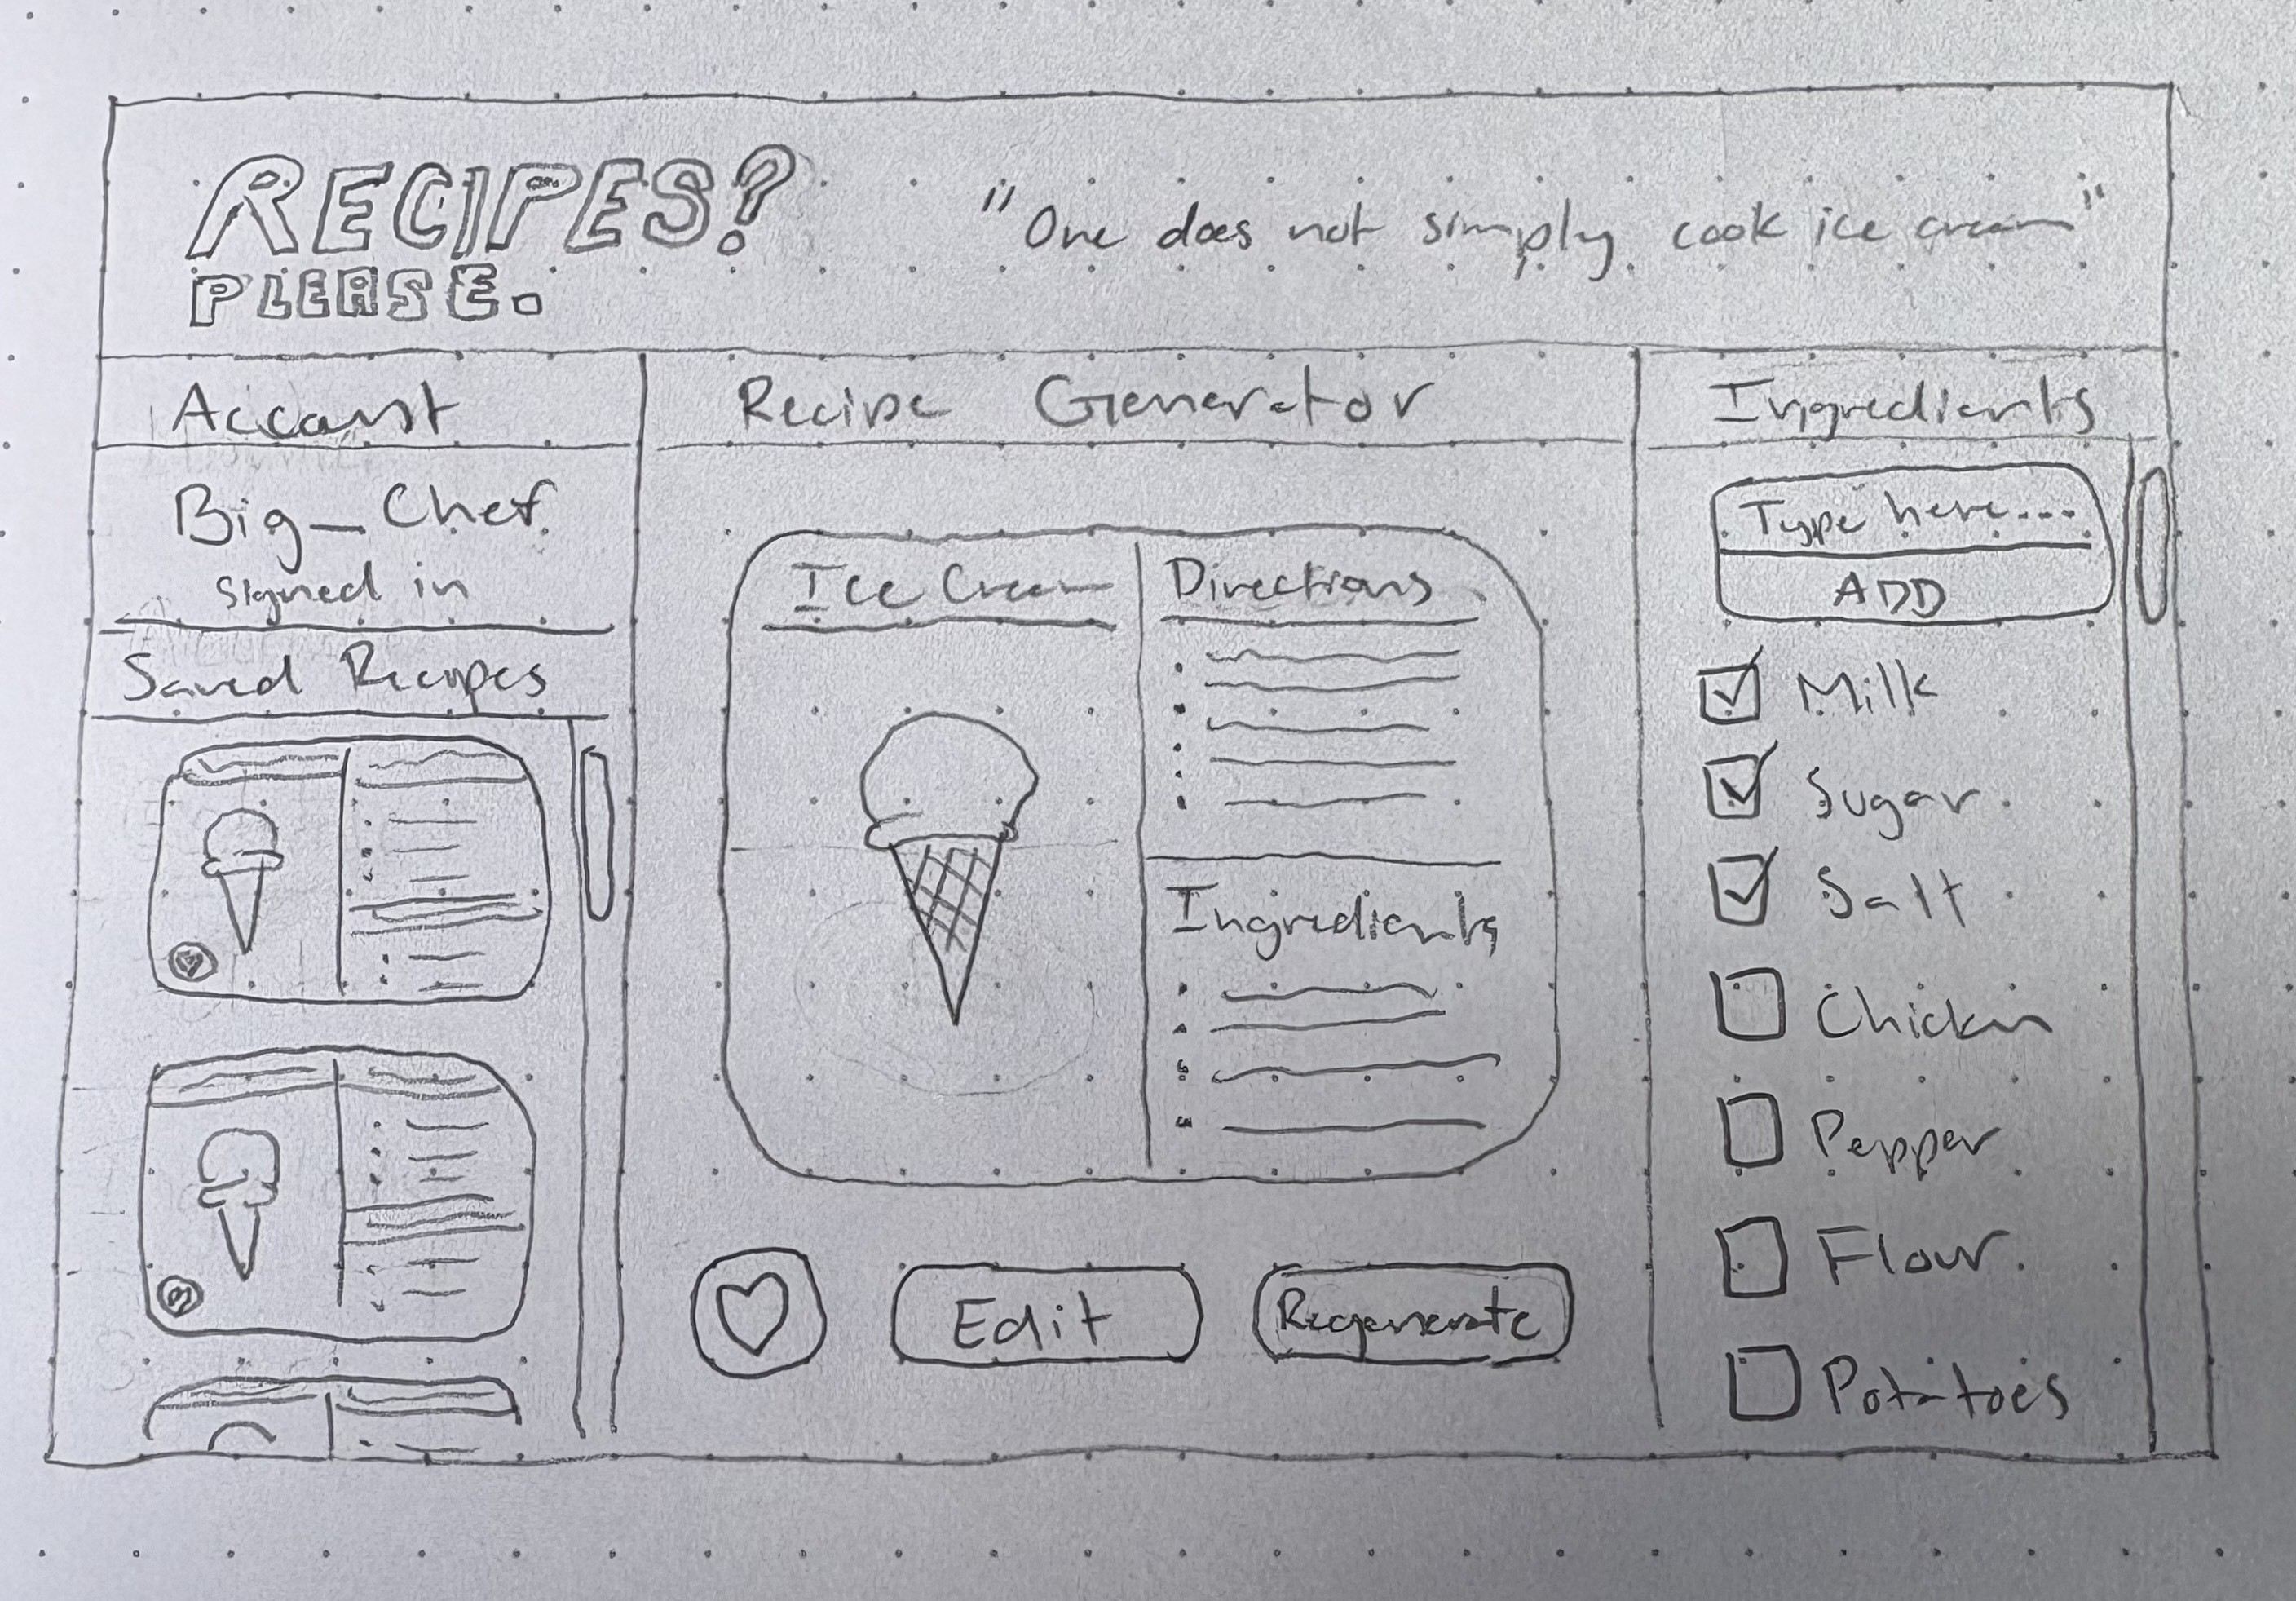 RECIPES?
PLEASE.
"One does not simply cook ice cream"
Account
Big_Chef
signed in
Saved Recipes
Recipe Generator
Ice Cream
Directions
Ingredients
Edit
Regenerate
Ingredients
Type here...
ADD
Milk
Sugar
Salt
Chicken
Pepper
Flour
Potatoes